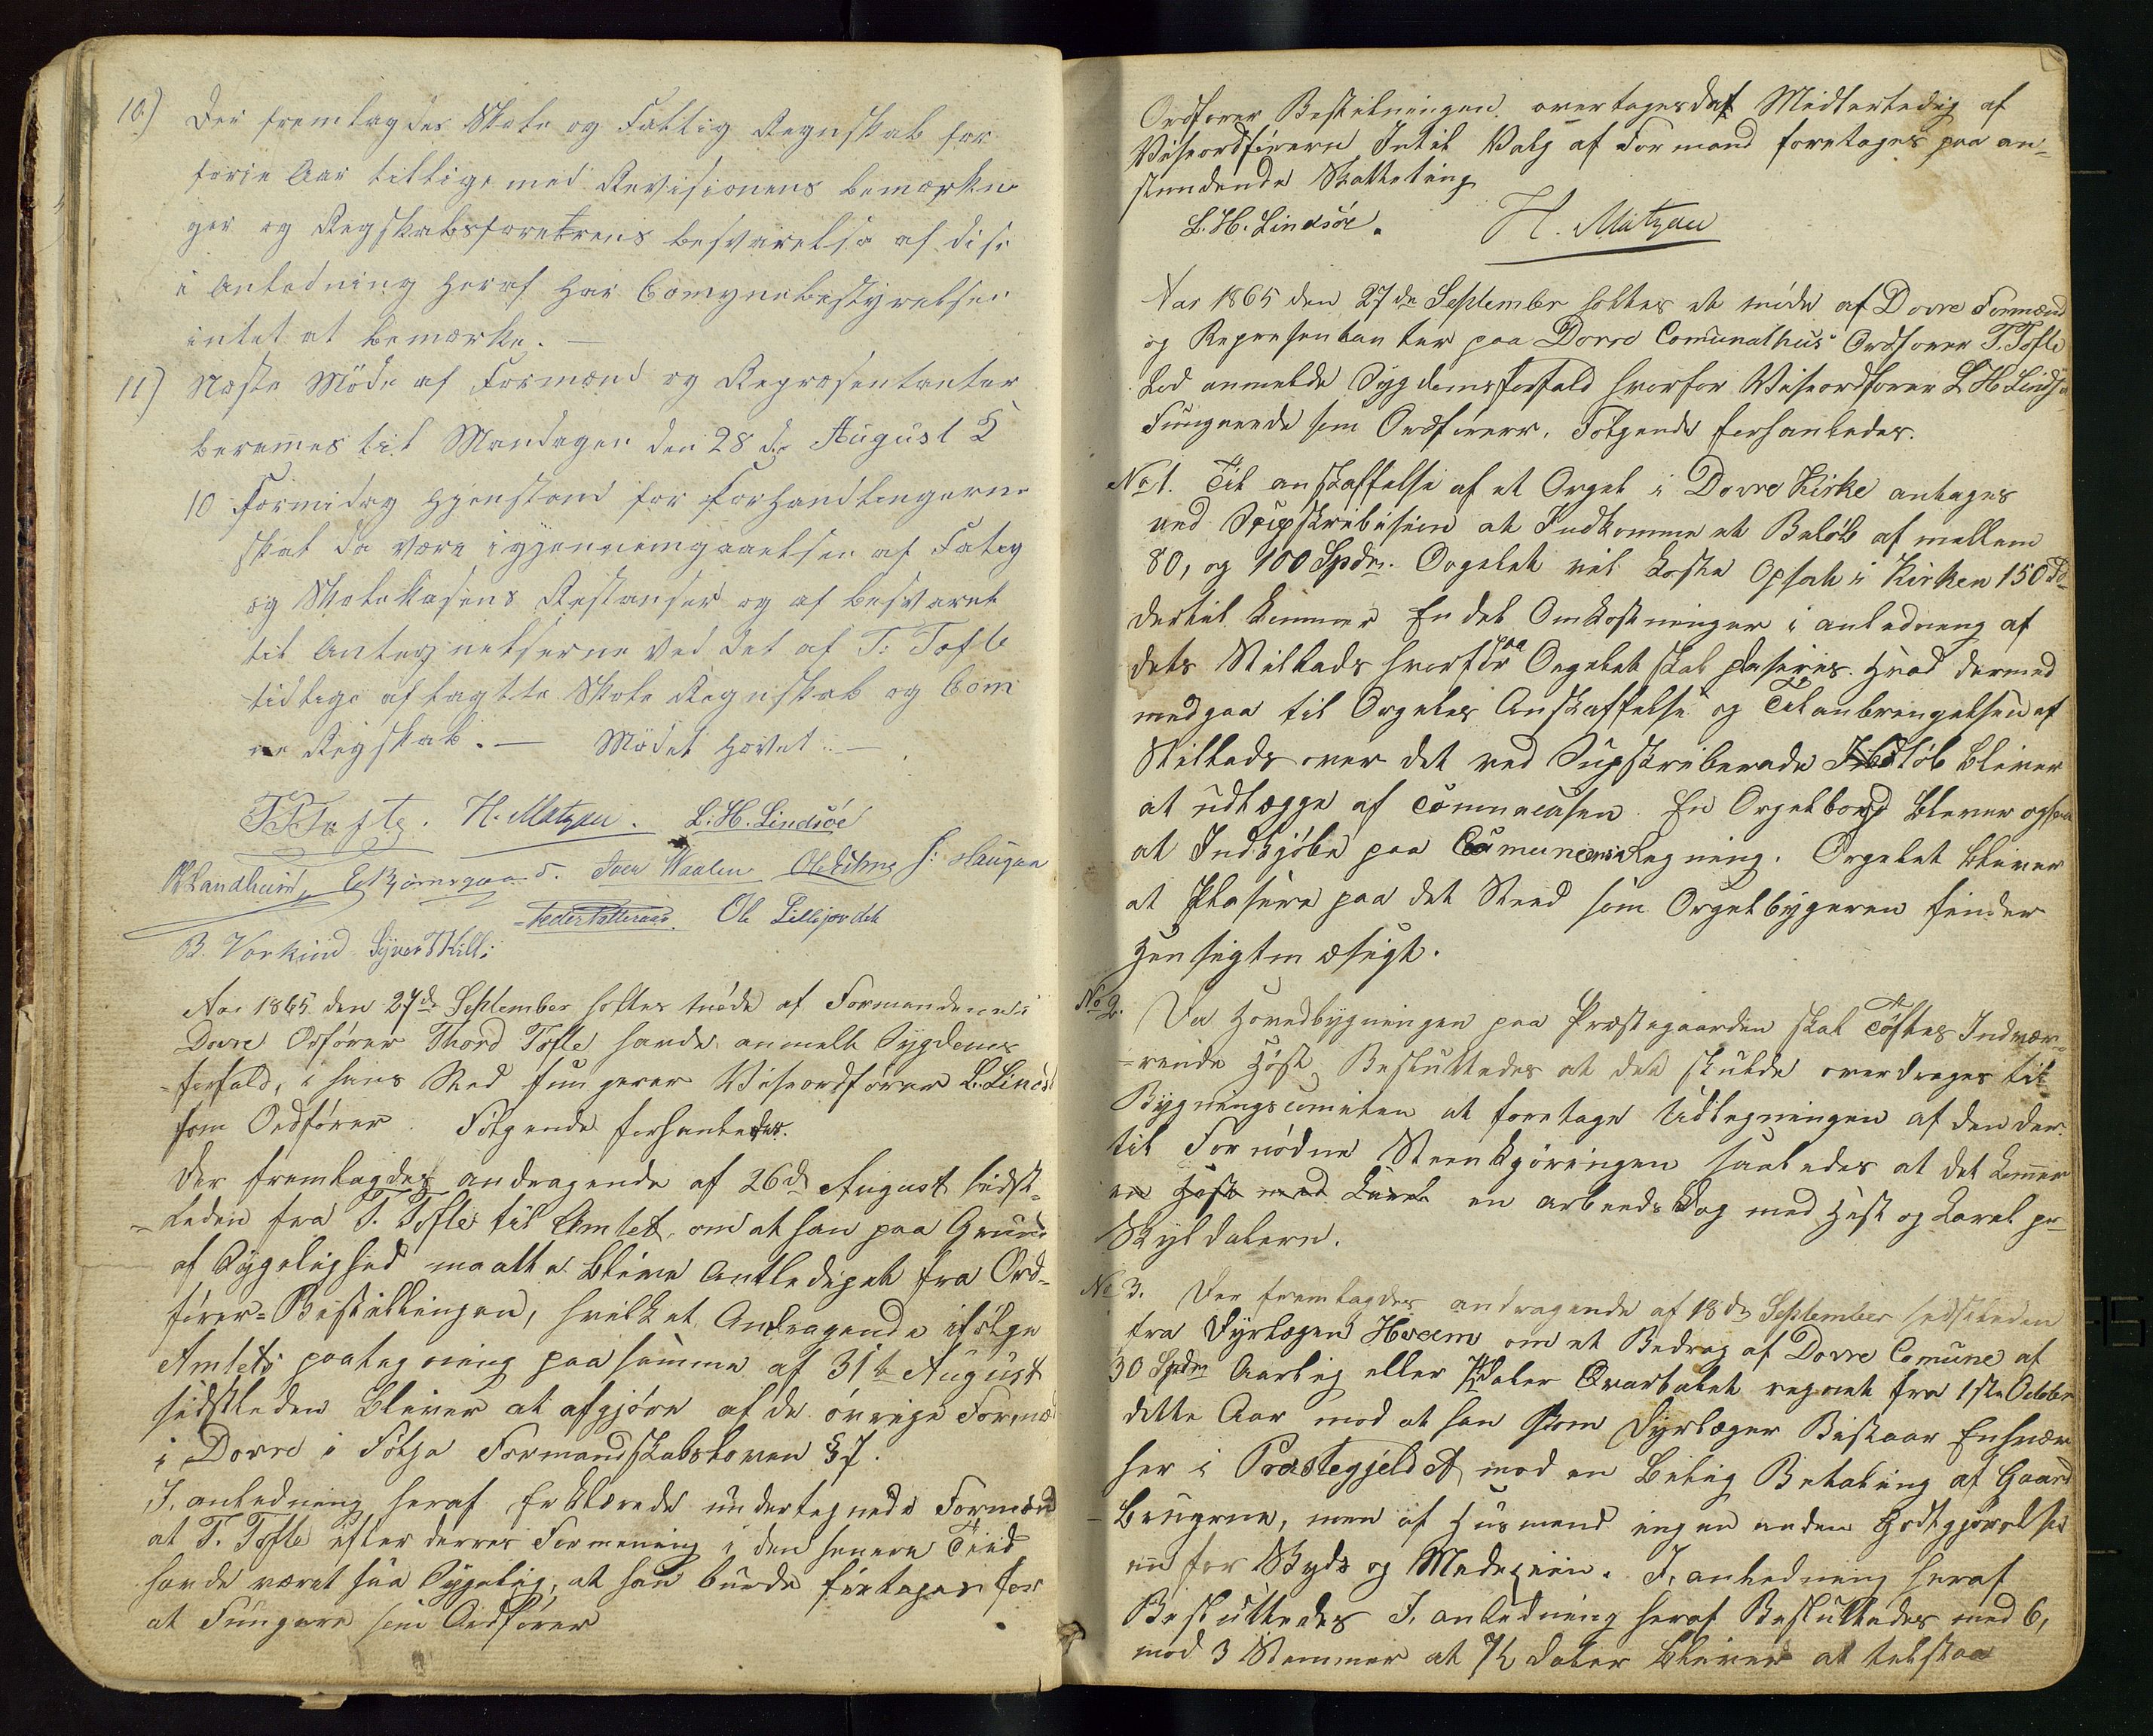 10) Der fremlagdes Skole og Fattig Regnskab for
forie Aar tillige med Revisionens bemærkn
ger og Regskabsførerens besvarelse af dise
i Anledning heraf har Comynebestyrelsen
intet at bemærke. —
11) Næste Möde af Formænd og Repræsentanter
berammes til Mandagen den 28 de August Kl
10 Formidag Gjenstand for Forhandlingerne
skal da være igjennemgaaelsen af Fatig
og Skolekasens Restanser og af besvaret
til Antegnelserne ved det af T: Tofte
tidlige aflagtte Skole Regnskab og Com
ne Regskab. — Mödet hævet. —
TTofte. H. Matzau. L. H. Lindsöe
P Landheim, E Bjørnsgaard. Iver Waalen Ole Ulmo J: Haugen
Peder Ole Lillejordet
B. Vorkind Syver THilli
Aar 1865 den 27de September holtes møde af Formændene i
Dovre Orfører Thord Tofte havde anmelt Sygdoms
forfald, i hans Sted fungerer Viseordfører L. Linds
som Ordfører. Følgende forhanledes.
Der fremlagdes andragende af 26de August sidst-
leden fra T. Tofte til Amtet, om at han paa Grund
af Sygelighed maatte blive Entledighet fra Ord-
förer-Bestillingen, hvilket Andragende ifölge
Amtets paategning paa samme af 31te August
sidstleden bliver at afgjøre af de övrige Formæ
i Dovre i Følge Formandskabsloven § 7.
I, anledning heraf Erklærede undertegnede Formænd
at T. Tofte efter derres Formening i den senere Tiid
havde været saa Sygelig, at han burde fritages for
at Fungere som Ordfører
Ordfører Bestilningen overtages da Midlertedig af
Viseordförern Intil Valg af Formand foretages paa an-
stundende Skatteting
L. H. Lindsöe. H. Matzau
Aar 1865 den 27de September holtes et möde af Dovre Formænd
og Representanter paa Dovre Comunalhus Ordfører T. Tofte
Lod anmelde Sygdomsforfald hvorfor Viseordfører L H Lindsø
Fungerede som Ordförer. Fölgende forhanledes.
No 1. Til anskaffelse af et Orgel i Dovre Kirke antages
ved Supskribision at Indkomme et Beløb af mellem
80, og 100 Spdr. Orgelet vil koste Opsat i Kirken 150 Sp
dertil kommer En del Omkostninger i anledning af
dets Stillads hvorpaa Orgelet skal plaseres. Hvad dermed
medgaar til Orgeles Anskaffelse og Til anbringelsen af
Stillads over det ved Supskriberede Beløb bliver
at udlægge af Comunecasen. En Orgelbog blever ogsaa
at Indkjøbe paa Comunens Regning. Orgelet bliver
at Plasere paa det Sted som Orgelbygeren finder
hensigtmæsigt.
No 2. Da Hovedbygningen paa Præstegaarden skal Töftes Indvær-
rende Høst, Besluttedes at det skulde overdrages til
Bygningscomiten at foretage Udlegningen af den der
til Fornødne Steenkjöringen saaledes at det kommer
en Hest med Karel en arbeeds Dag med Hest og Karel pr
Skyldalern.
No 3. Der fremlagdes andragende af 18de September sidstleden
fra Dyrlægen Hveem om et Bedrag af Dovre Comune af
30 Spdr Aarlig eller 7½ Daler Qvartalet regnet fra 1ste October
dette Aar mod at han som Dyrlæger Bistaar Enhver
her i Præstegjeldet mod en Billig Betaling af Gaard
Brugerne, men af Husmend ingen anden Godtgjørelse
en for Skyds og Medezien. I, anledning heraf
Besluttedes I, anledning heraf Besluttedes med 6,
mod 3 Stemmer at 7½ daler bliver at tilstaa